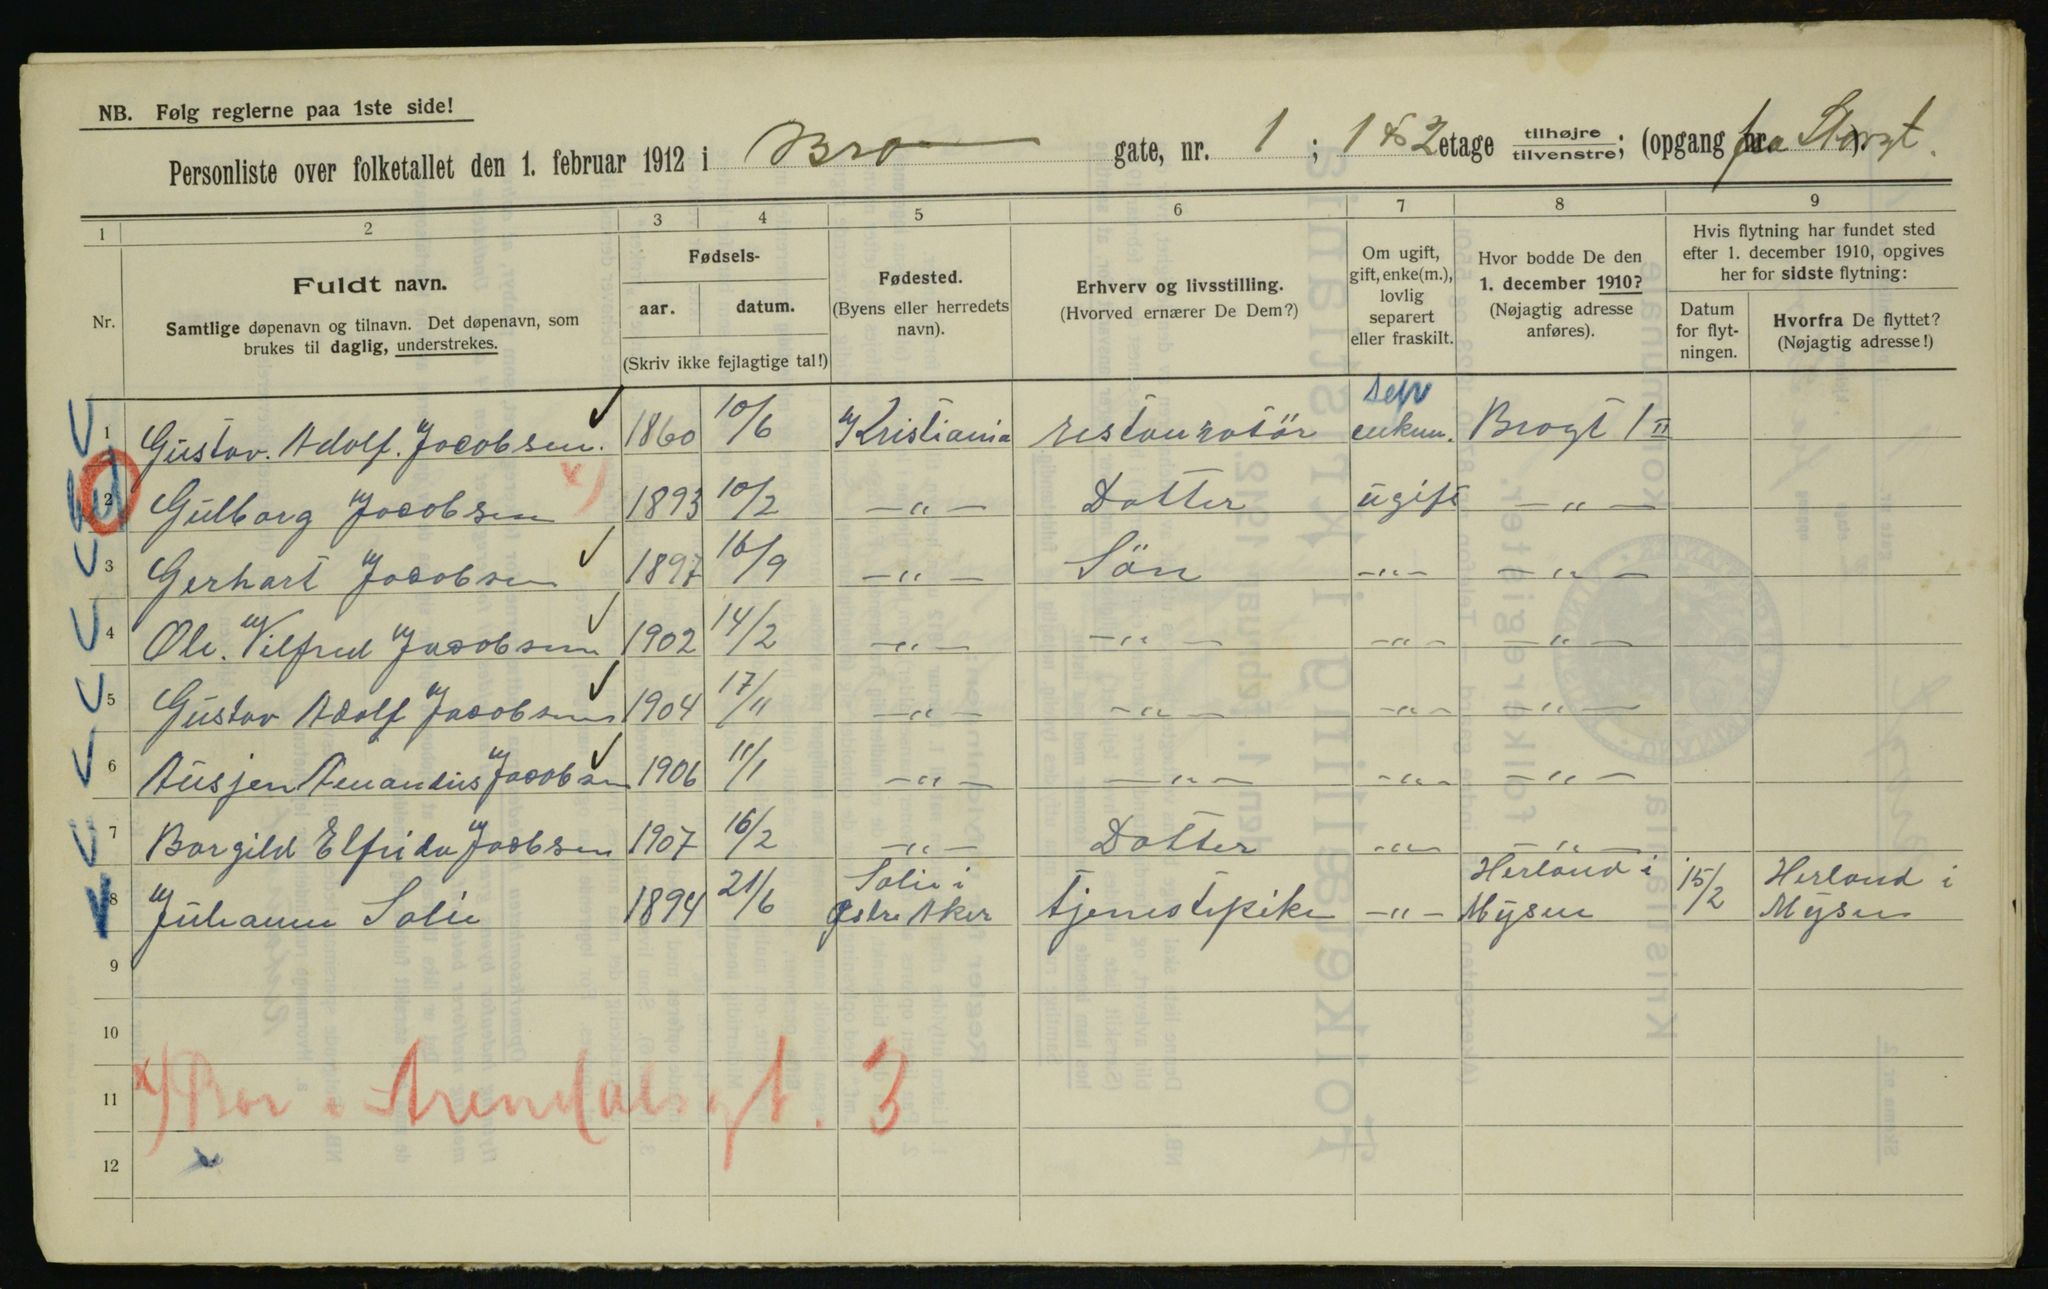 NB. Følg reglerne paa 1ste side!
Personliste over folketallet den 1. februar 1912 i Bro gate, nr. 1 ; 1 & 2 etage tilhøjre tilvenstre; (opgang nr. fra Storgt.
1 2 3 4 5 6 7 8 9
Nr.
Fuldt navn.
Samtlige døpenavn og tilnavn. Det døpenavn, som
brukes til daglig, understrekes.
Fødsels-
aar. datum.
(Skriv ikke fejlagtige tal!)
Fødested.
(Byens eller herredets
navn).
Erhverv og livsstilling.
(Hvorved ernærer De Dem?)
Om ugift,
gift, enke(m.),
lovlig
separert
eller fraskilt.
Hvor bodde De den
1. december 1910?
(Nøjagtig adresse
anføres).
Hvis flytning har fundet sted
efter 1. december 1910, opgives
her for sidste flytning:
Datum
for flyt-
ningen.
Hvorfra De flyttet?
(Nøjagtig adresse!)
sep
1 Gustav. Adolf. Jacobsen. 1860 10/6 Kristiania restauratör enkem. Brogt 1 II
2 Gulborg Jacobsen x) 1893 10/2 —"— Datter ugift —"—
3 Gerhart Jacobsen 1897 16/9 —"— Sön —"— —"—
4 Ole. Vilfred Jacobsen 1902 14/2 —"— —"— —"— —"—
5 Gustav Adolf Jacobsen 1904 17/11 —"— —"— —"— —"—
6 Ausjen Amandus Jacobsen 1906 11/1 —"— —"— —"— —"—
7 Borgild Elfrida Jacobsen 1907 16/2 —"— Datter —"— —"—
8 Julianne Solie 1894 21/6 Solie i Østre Aker tjenestepike —"— Herland i Mysen 15/2 Herland i Mysen
9
10
11 x) Bor i Arendalsgt. 3
12